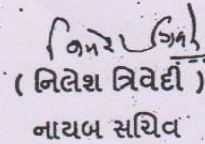 ( નિલેશ ત્રિવેદી )
નાયબ સચિવ